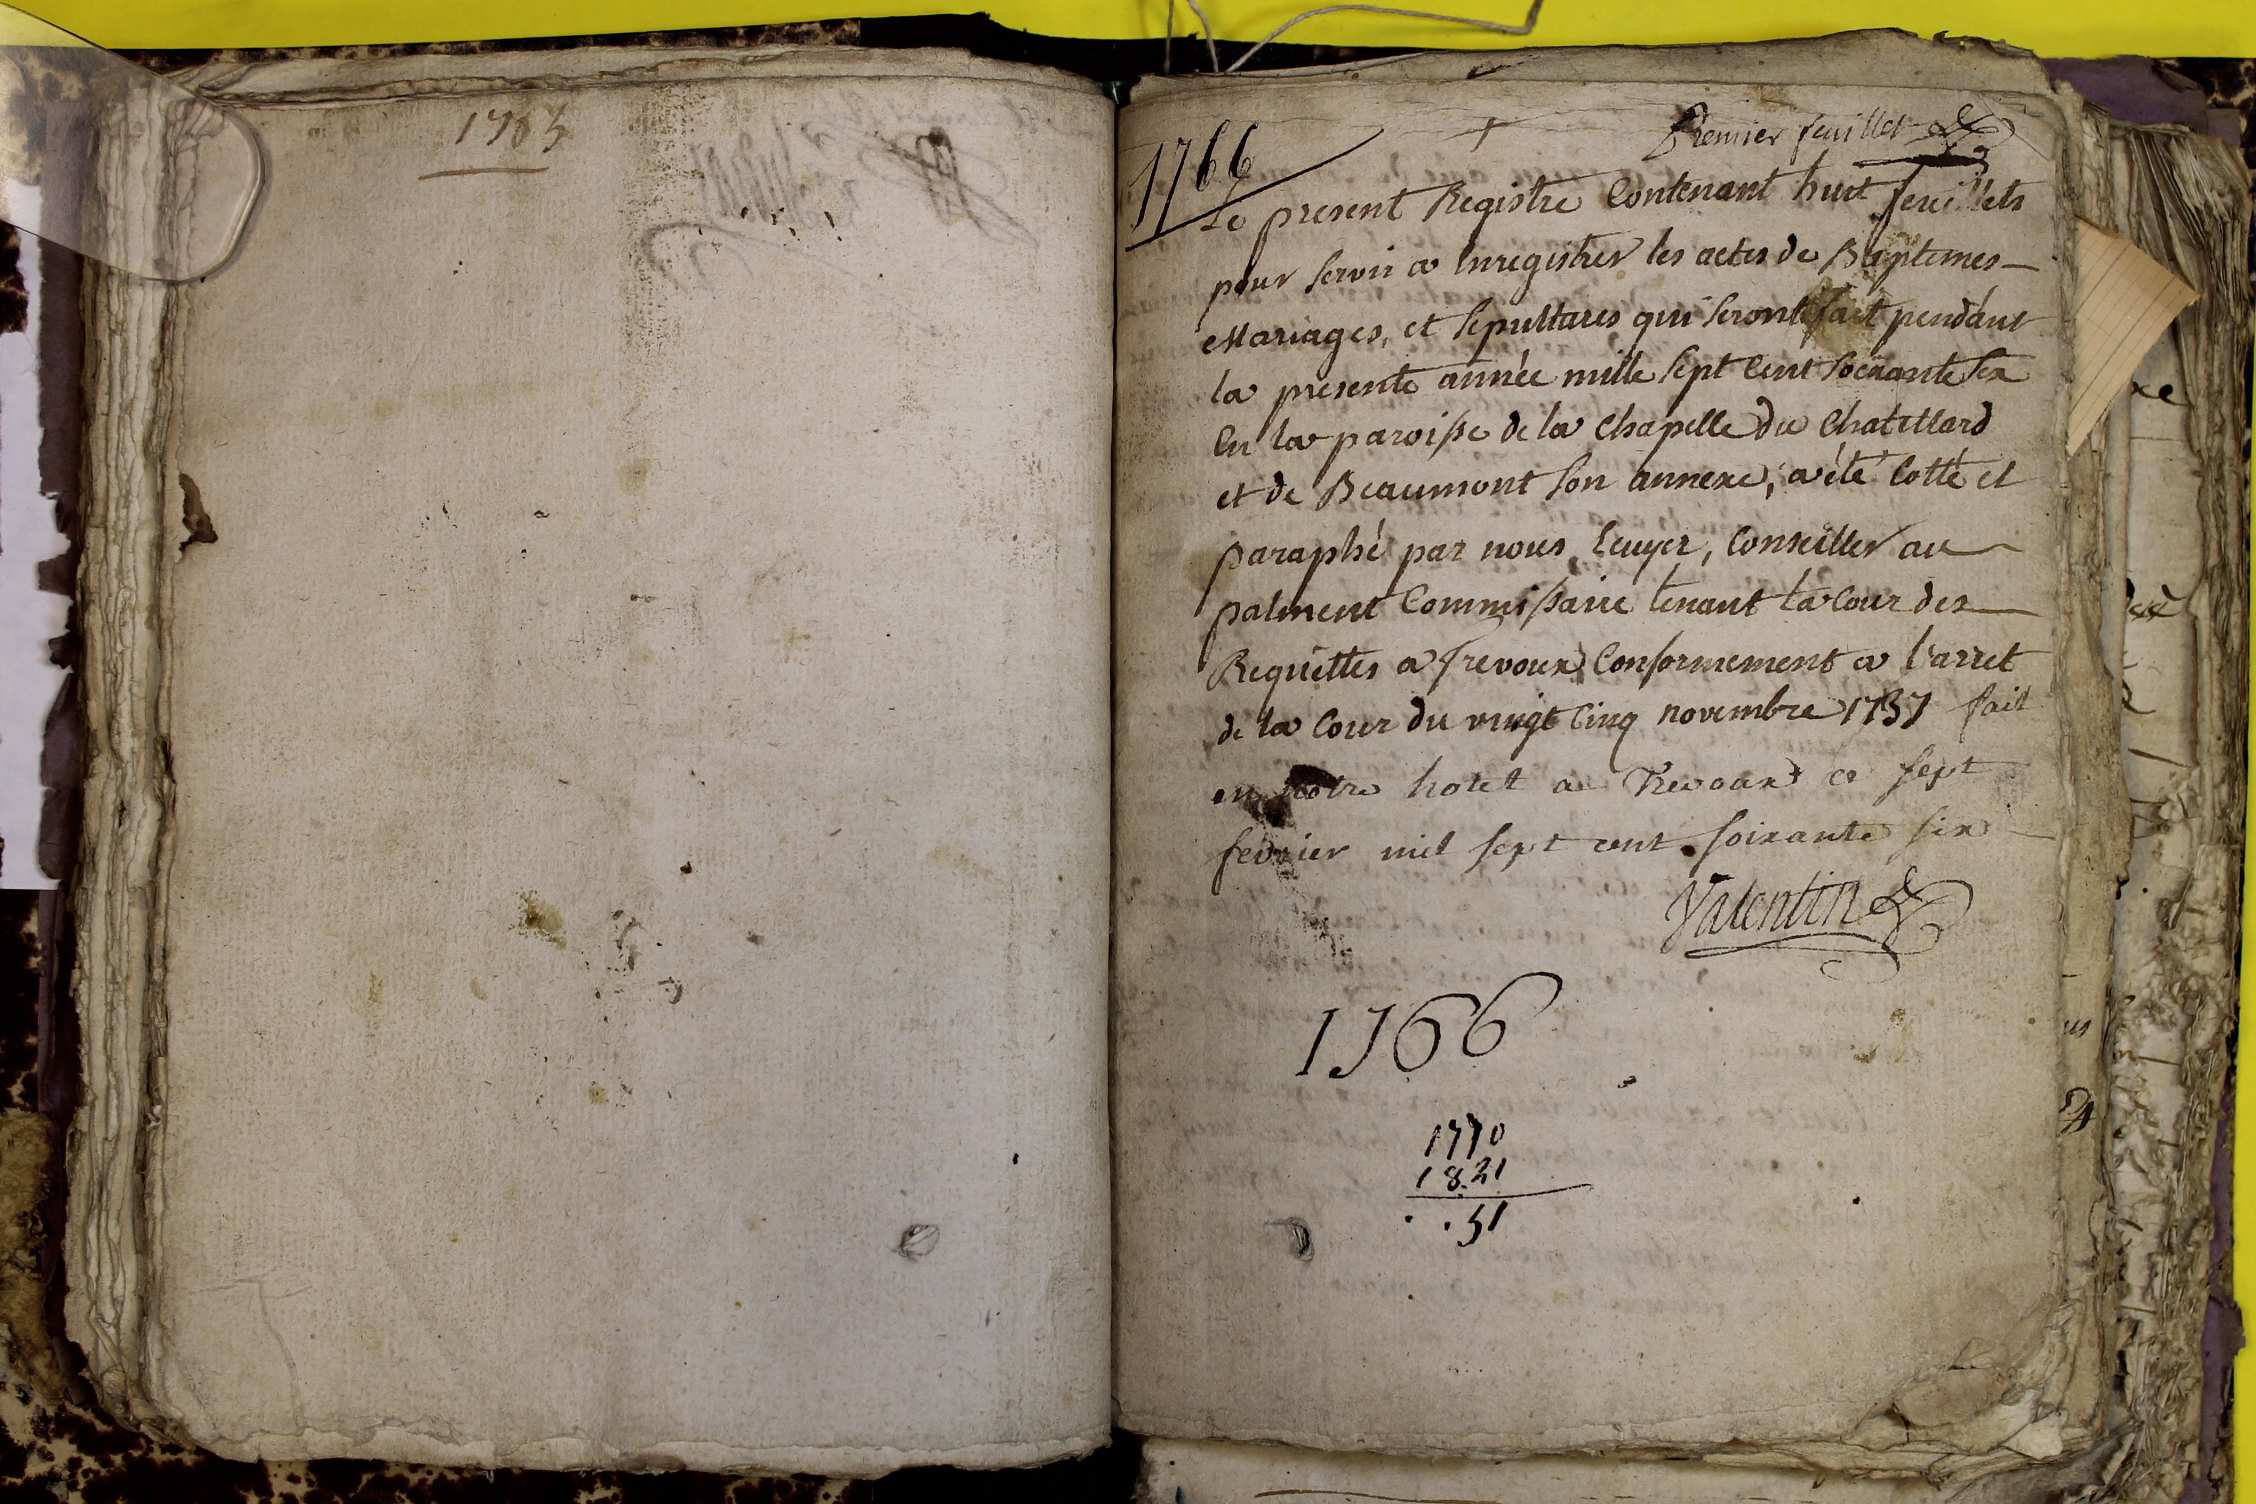 1765
Premier feuillet
1766
Le present Registre Contenant huit feuillets
pour servir a Enregistrer les actes de Baptemes
Mariages, et sepultures qui seront fait pendant
la presente année mille sept Cent soixante six
En la paroisse de la Chapelle du Chatellard
et de Beaumont son annexe, a été Cotté et
paraphé par nous Ecuyer, Conseiller au
palment Commissaire tenant la Cour des
Requettes a Trevoux Conformement a l'arret
de la Cour du vingt Cinq novembre 1737 fait
en notre hotel a Trevoux ce sept
fevrier mil sept cent soixante six
Valentin
1766
1770
1821
. . 51